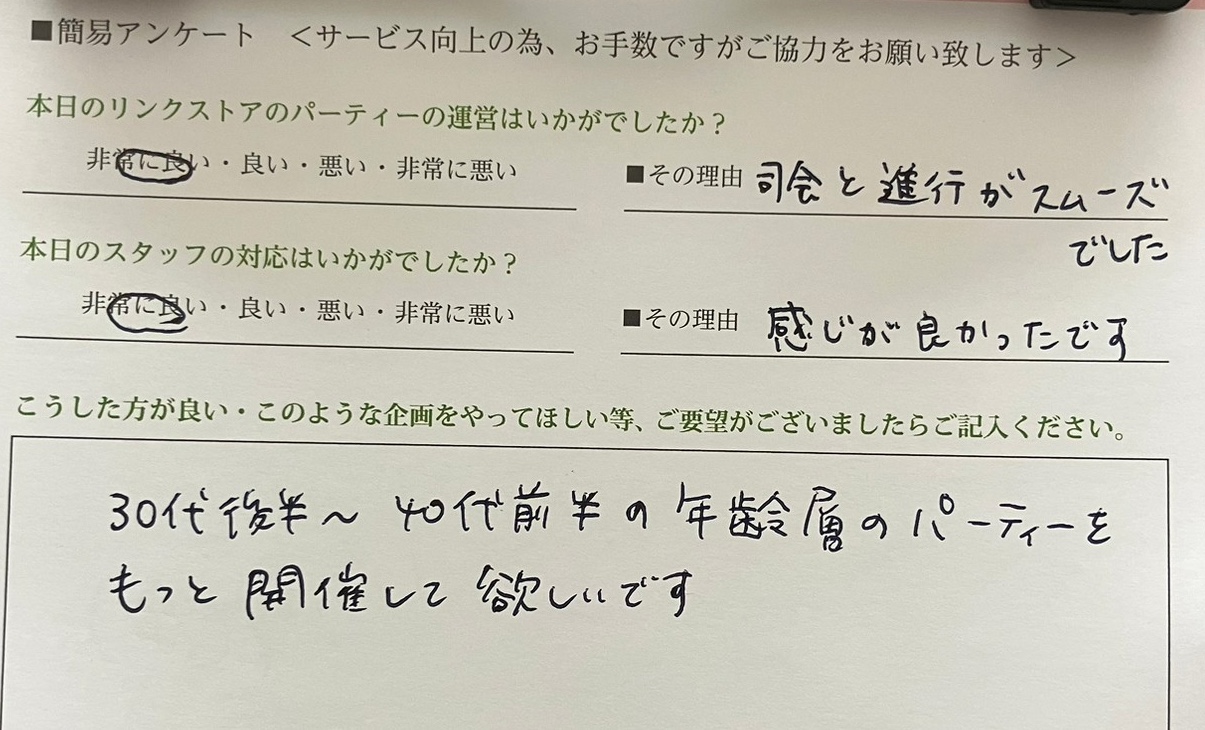 ■簡易アンケート　＜サービス向上の為、お手数ですがご協力をお願い致します＞
本日のリンクストアのパーティーの運営はいかがでしたか？
非常に良い・良い・悪い・非常に悪い
■その理由 司会と進行がスムーズ
でした
本日のスタッフの対応はいかがでしたか？
非常に良い・良い・悪い・非常に悪い
■その理由 感じが良かったです
こうした方が良い・このような企画をやってほしい等、ご要望がございましたらご記入ください。
30代後半～40代前半の年齢層のパーティーを
もっと開催して欲しいです